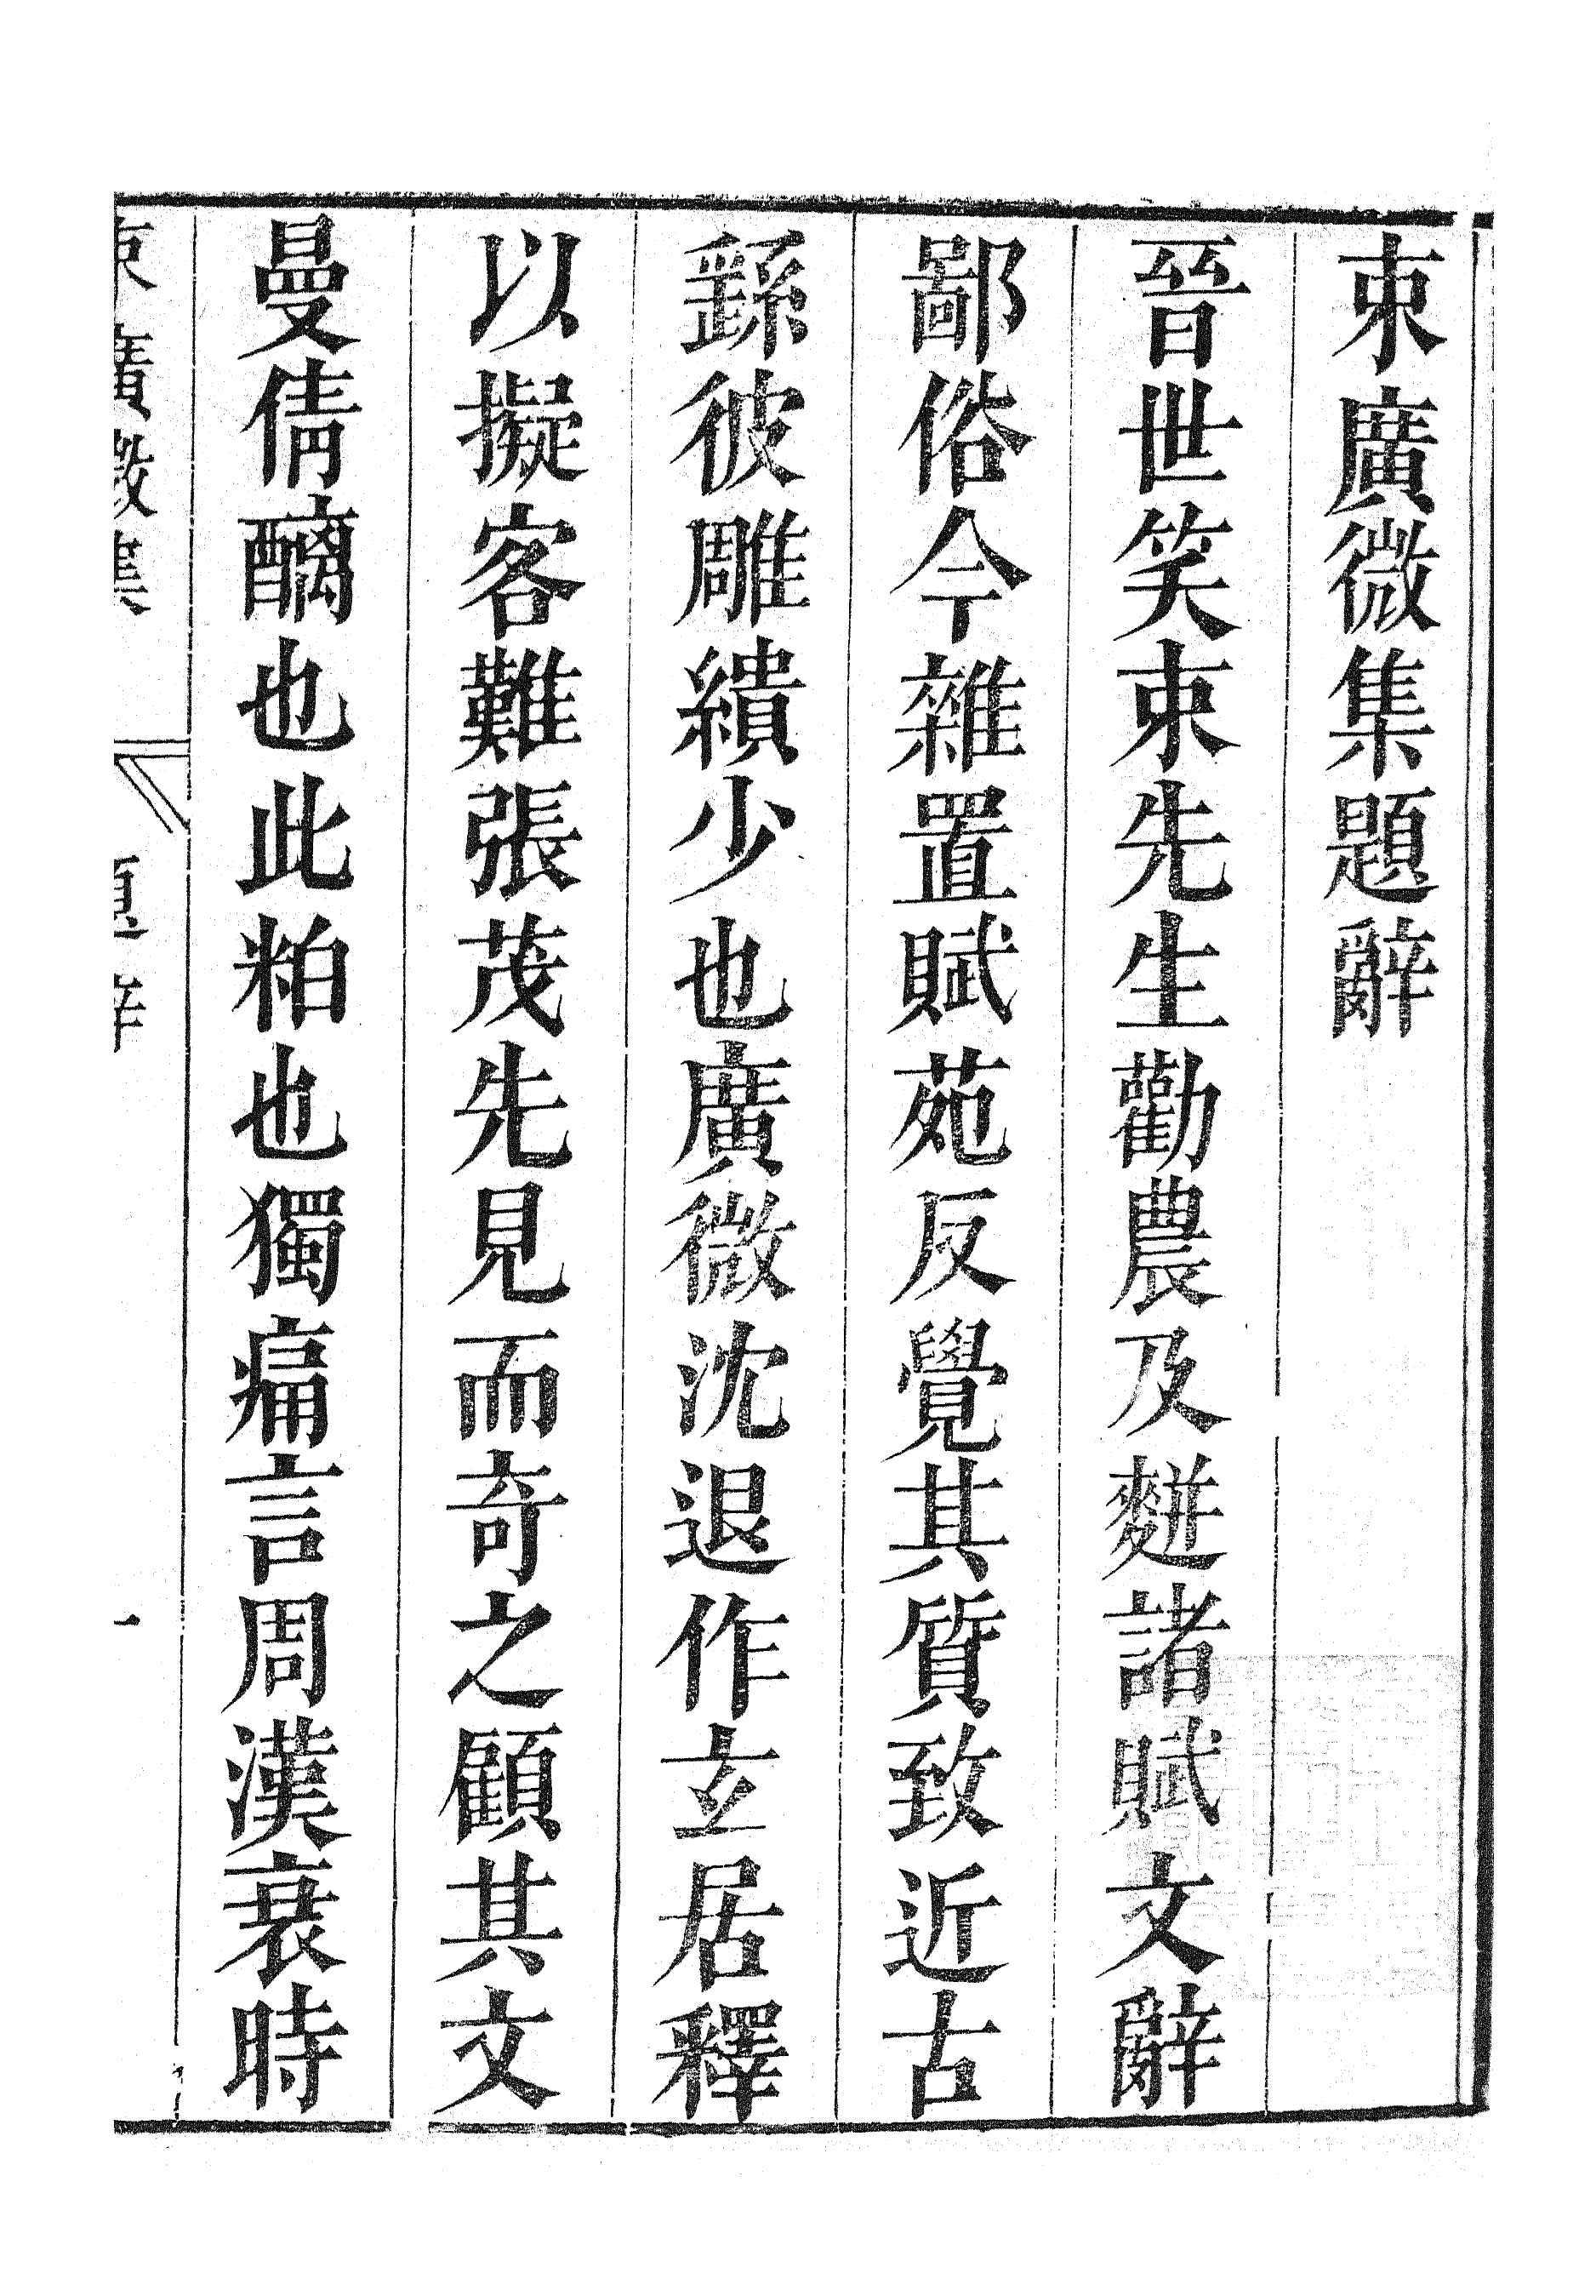 束廣微集題辭
晉世笑束先生勸農及麪諸賦文辭
鄙俗今雜置賦苑反覺其質致近古
繇彼雕繢少也廣微沈退作玄居釋
以擬客難張茂先見而奇之顧其文
曼倩醨也此粕也獨痛言周漢衰時
束廣微集
題辭
一